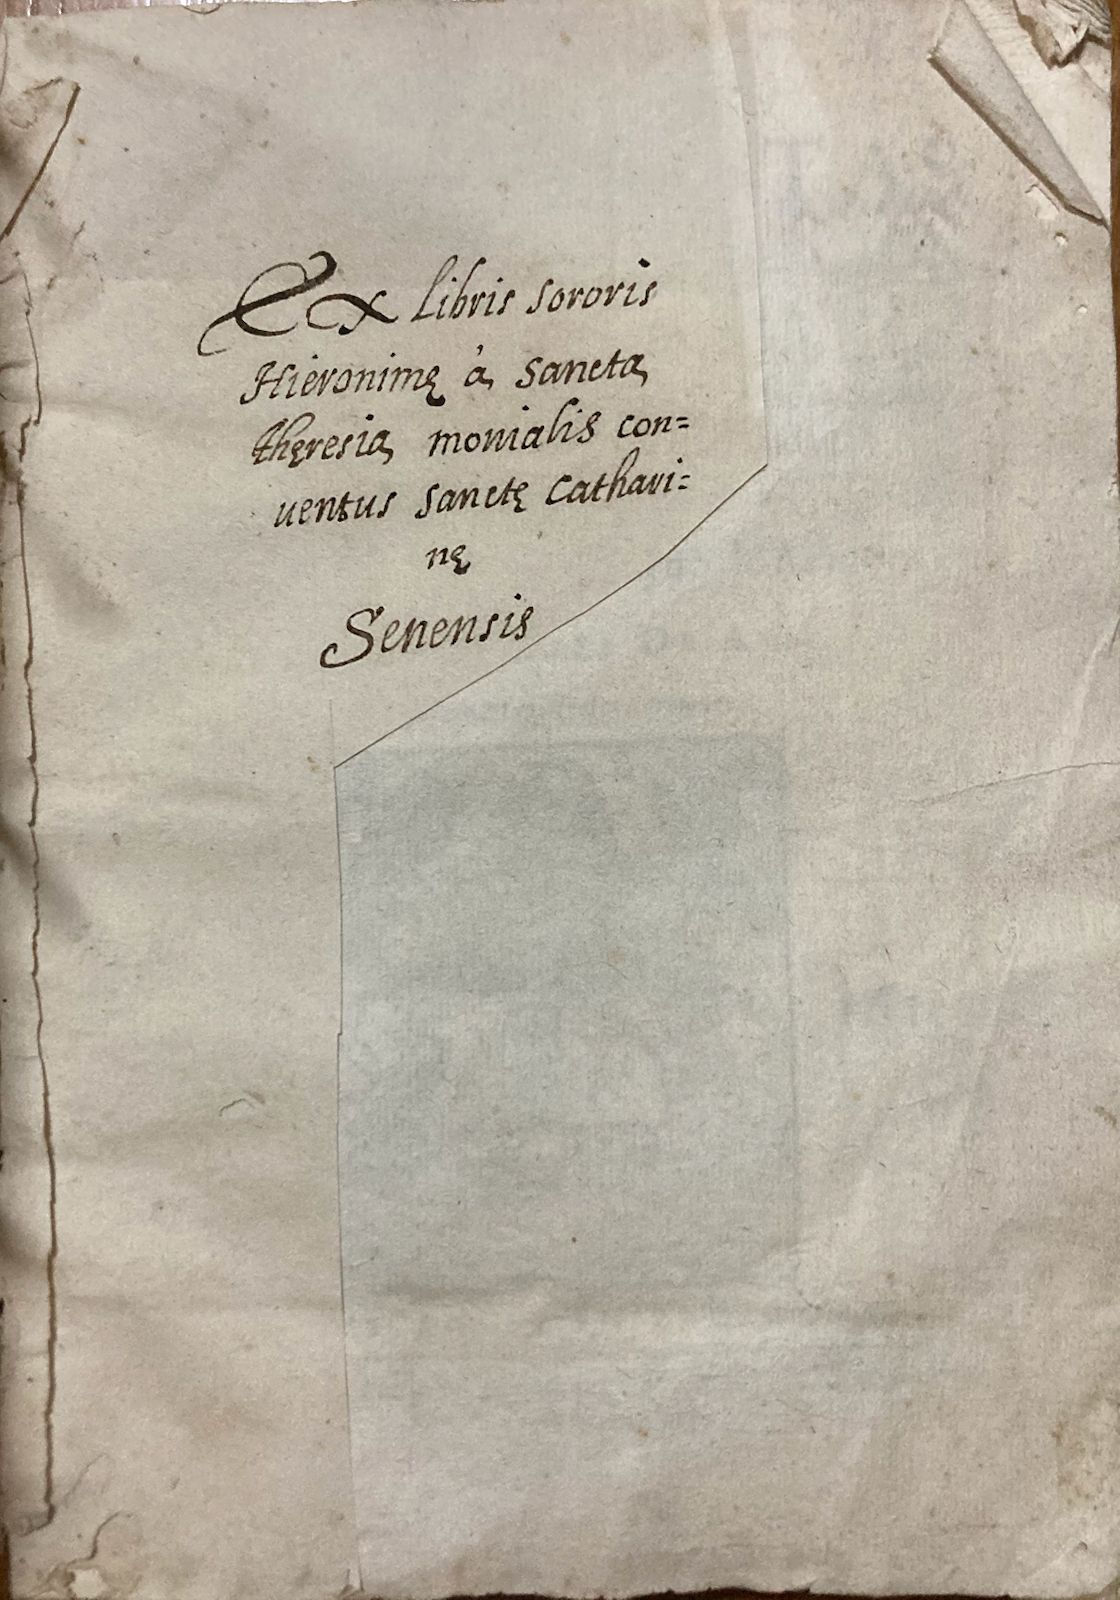 Ex libris sororis
Hieronimę à Sancta
thęresia monialis con=
uentus sanctę cathari=
nę
Senensis